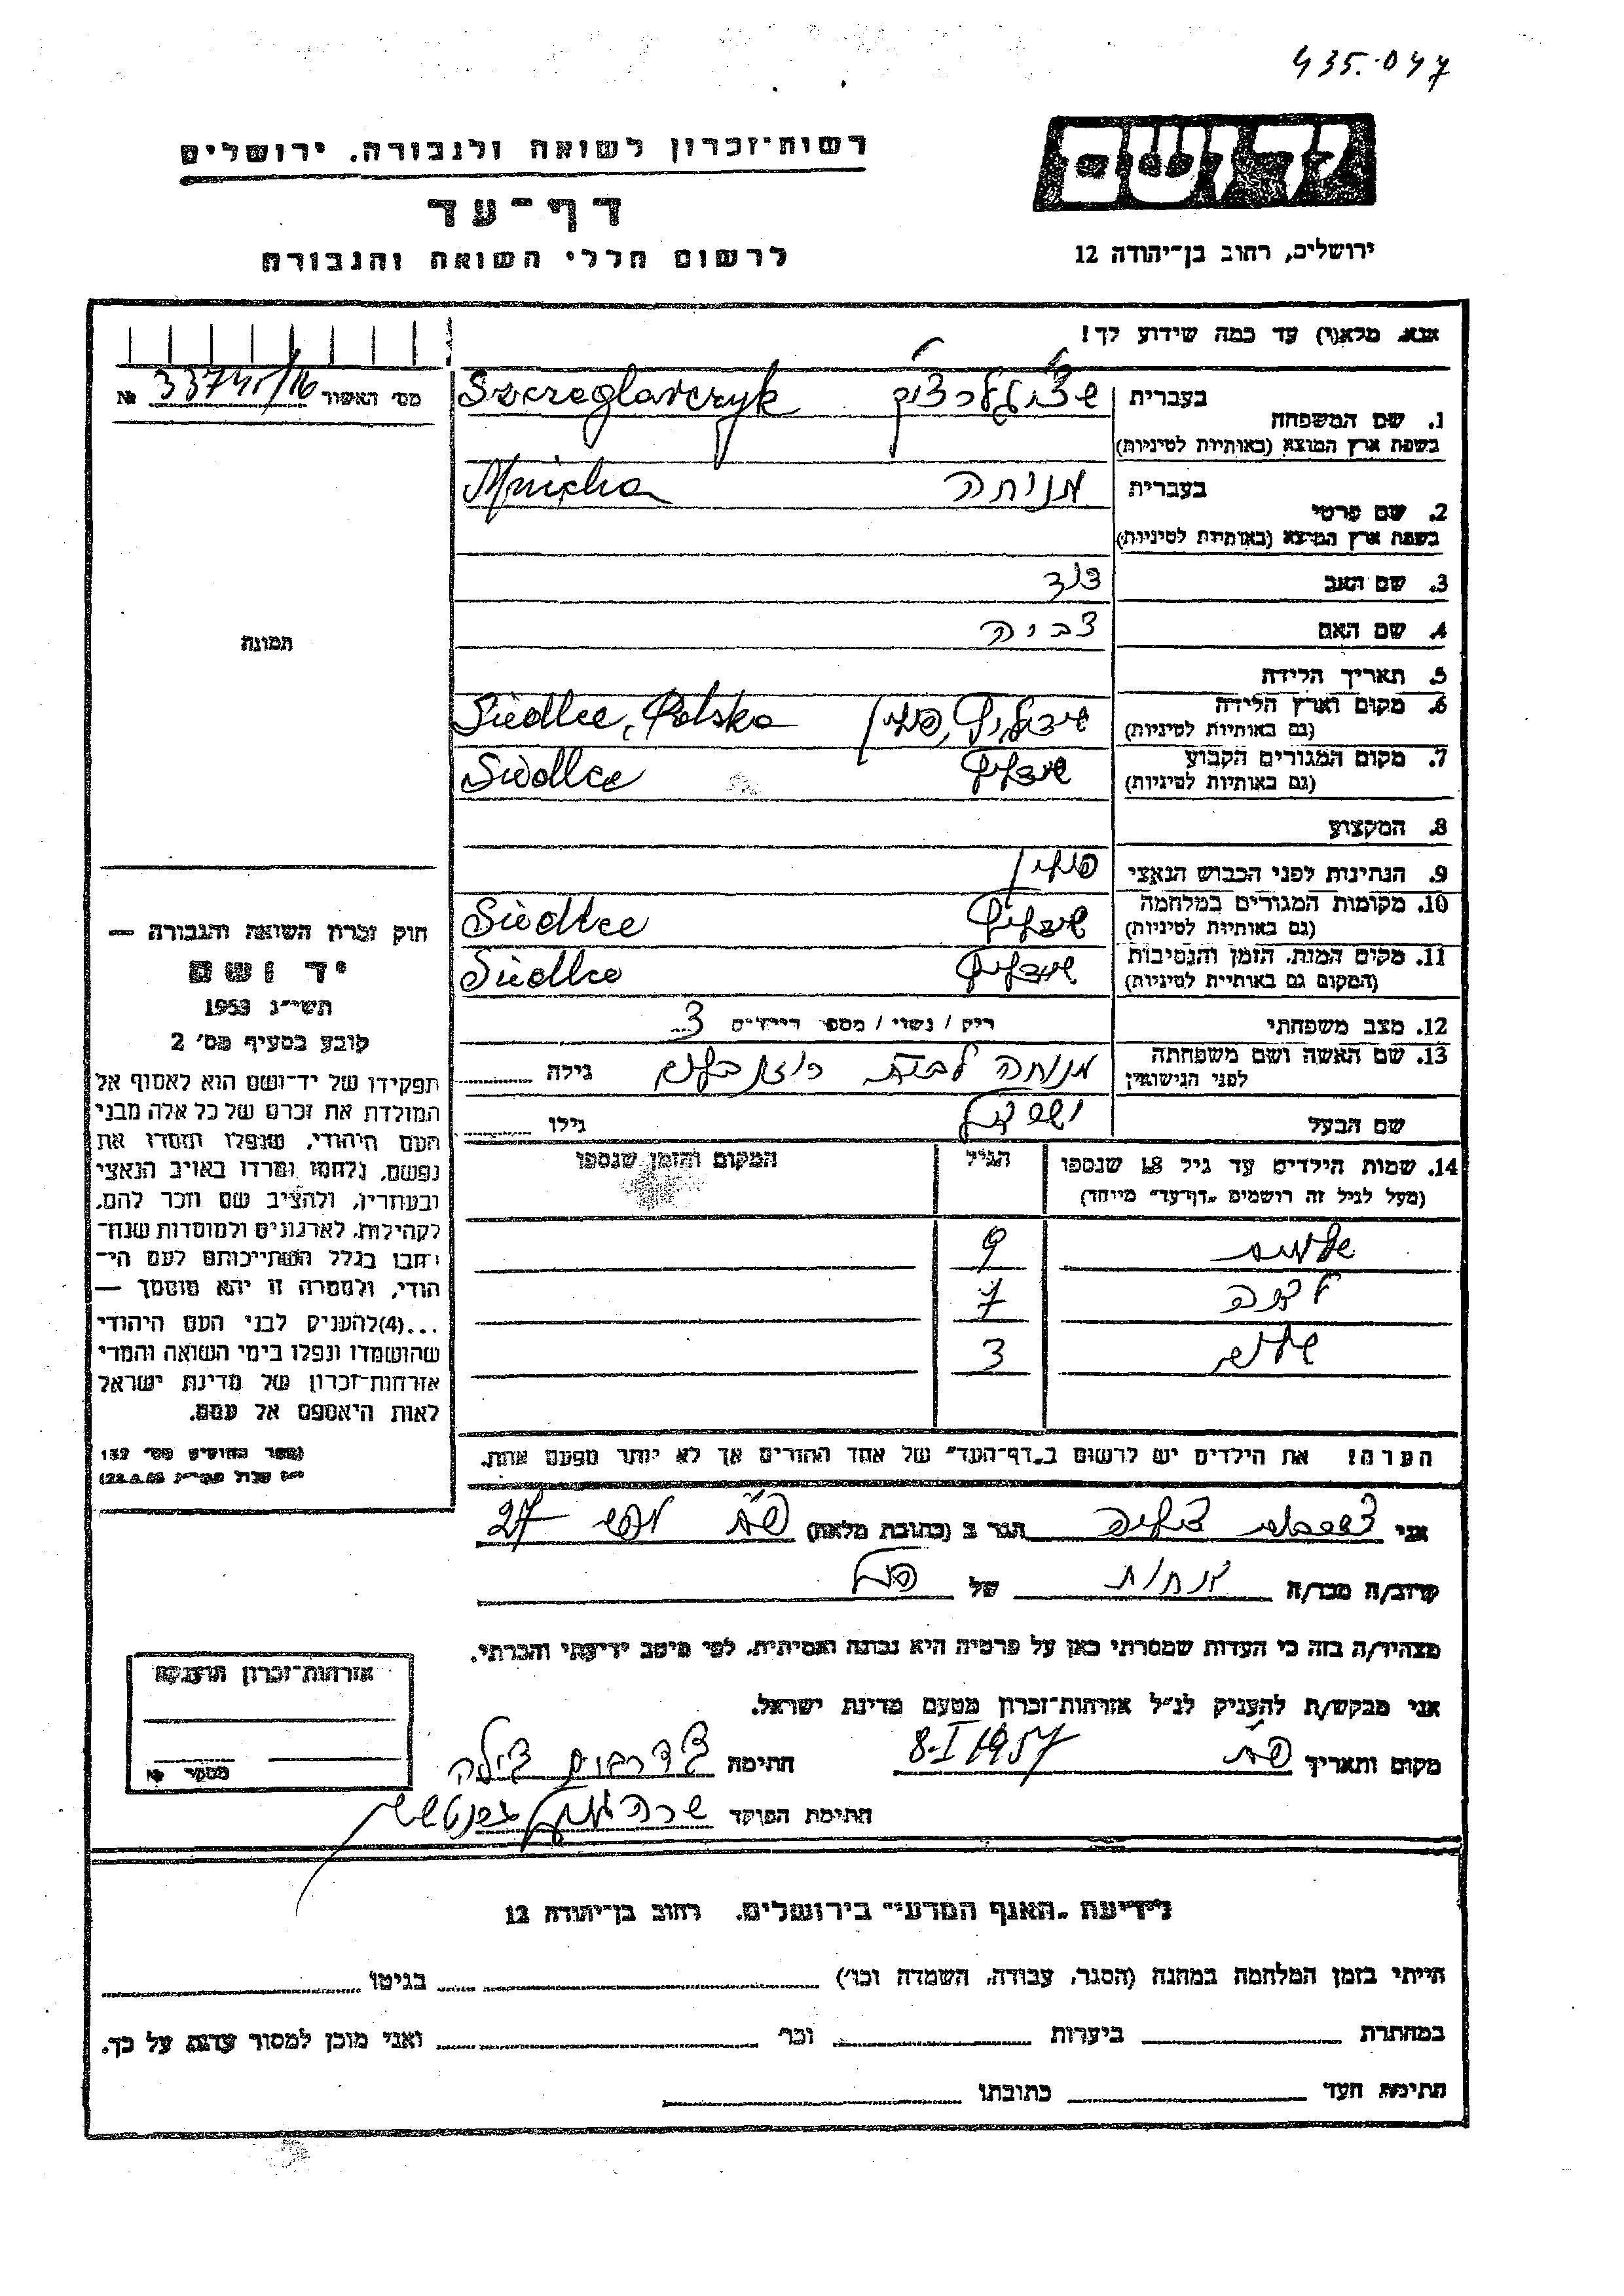 435.047
רשות־זכרון לשואה ולגבורה. ירושלים
דף־עד
לרשום חללי השואה והגבורה
ירושלים, רחוב בן־יהודה 12
אנא. מלא(י) עד כמה שידוע לך!
מס׳ האשור № 33745/16
1. שם המשפחה
בעברית
Szczeglarczyk
בשפת ארץ המוצא (באותיות לטיניות)
2. שם פרטי
בעברית מנוחה
בשפת ארץ המוצא (באותיות לטיניות)
3. שם האב דוד
4. שם האם צביה
5. תאריך הלידה
6. מקום וארץ הלידה שידליץ, פולין Siedlce, Polska
(גם באותיות לטיניות)
7. מקום המגורים הקבוע שידליץ Siedlce
(גם באותיות לטיניות)
8. המקצוע
9. הנתינות לפני הכבוש הנאצי פולין
10. מקומות המגורים במלחמה שידליץ Siedlce
(גם באותיות לטיניות)
11. מקום המות. הזמן והנסיבות שידליץ Siedlce
(המקום גם באותיות לטיניות)
12. מצב משפחתי רוק / נשוי / מספר הילדים 3
13. שם האשה ושם משפחתה מנוחה לבית רוזנבלום גילה
לפני הנישואין
שם הבעל גילו
14. שמות הילדים עד גיל 18 שנספו הגיל המקום והזמן שנספו
(מעל לגיל זה רושמים „דף־עד״ מיוחד)
9
7
3
הערה! את הילדים יש לרשום ב„דף־העד״ של אחד ההורים אך לא יותר מפעם אחת.
תמונה
חוק זכרון השואה והגבורה —
יד ושם
תשי״ג 1953
קובע בסעיף מס׳ 2
תפקידו של יד־ושם הוא לאסוף אל
המולדת את זכרם של כל אלה מבני
העם היהודי, שנפלו ומסרו את
נפשם, נלחמו ומרדו באויב הנאצי
ובעוזריו, ולהציב שם וזכר להם,
לקהילות, לארגונים ולמוסדות שנח־
רבו בגלל השתייכותם לעם הי־
הודי, ולמטרה זו יהא מוסמך —
...(4)להעניק לבני העם היהודי
שהושמדו ונפלו בימי השואה והמרי
אזרחות־זכרון של מדינת ישראל
לאות היאספם אל עמם.
אני הגר ב (כתובת מלאה) 27
קרוב/ה מכר/ה אחות של
מצהיר/ה בזה כי העדות שמסרתי כאן על פרטיה היא נכונה ואמיתית, לפי מיטב ידיעתי והכרתי.
אני מבקש/ת להעניק לנ״ל אזרחות־זכרון מטעם מדינת ישראל.
מקום ותאריך 8-I 1957 חתימה
חתימת הפוקד
אזרחות־זכרון הוענקה
מספר №
לידיעת „האגף המדעי״ בירושלים. רחוב בן־יהודה 12
הייתי בזמן המלחמה במחנה (הסגר, עבודה, השמדה וכו׳) בגיטו
במחתרת ביערות וכו׳ ואני מוכן למסור עדות על כך.
חתימת העד כתובתו